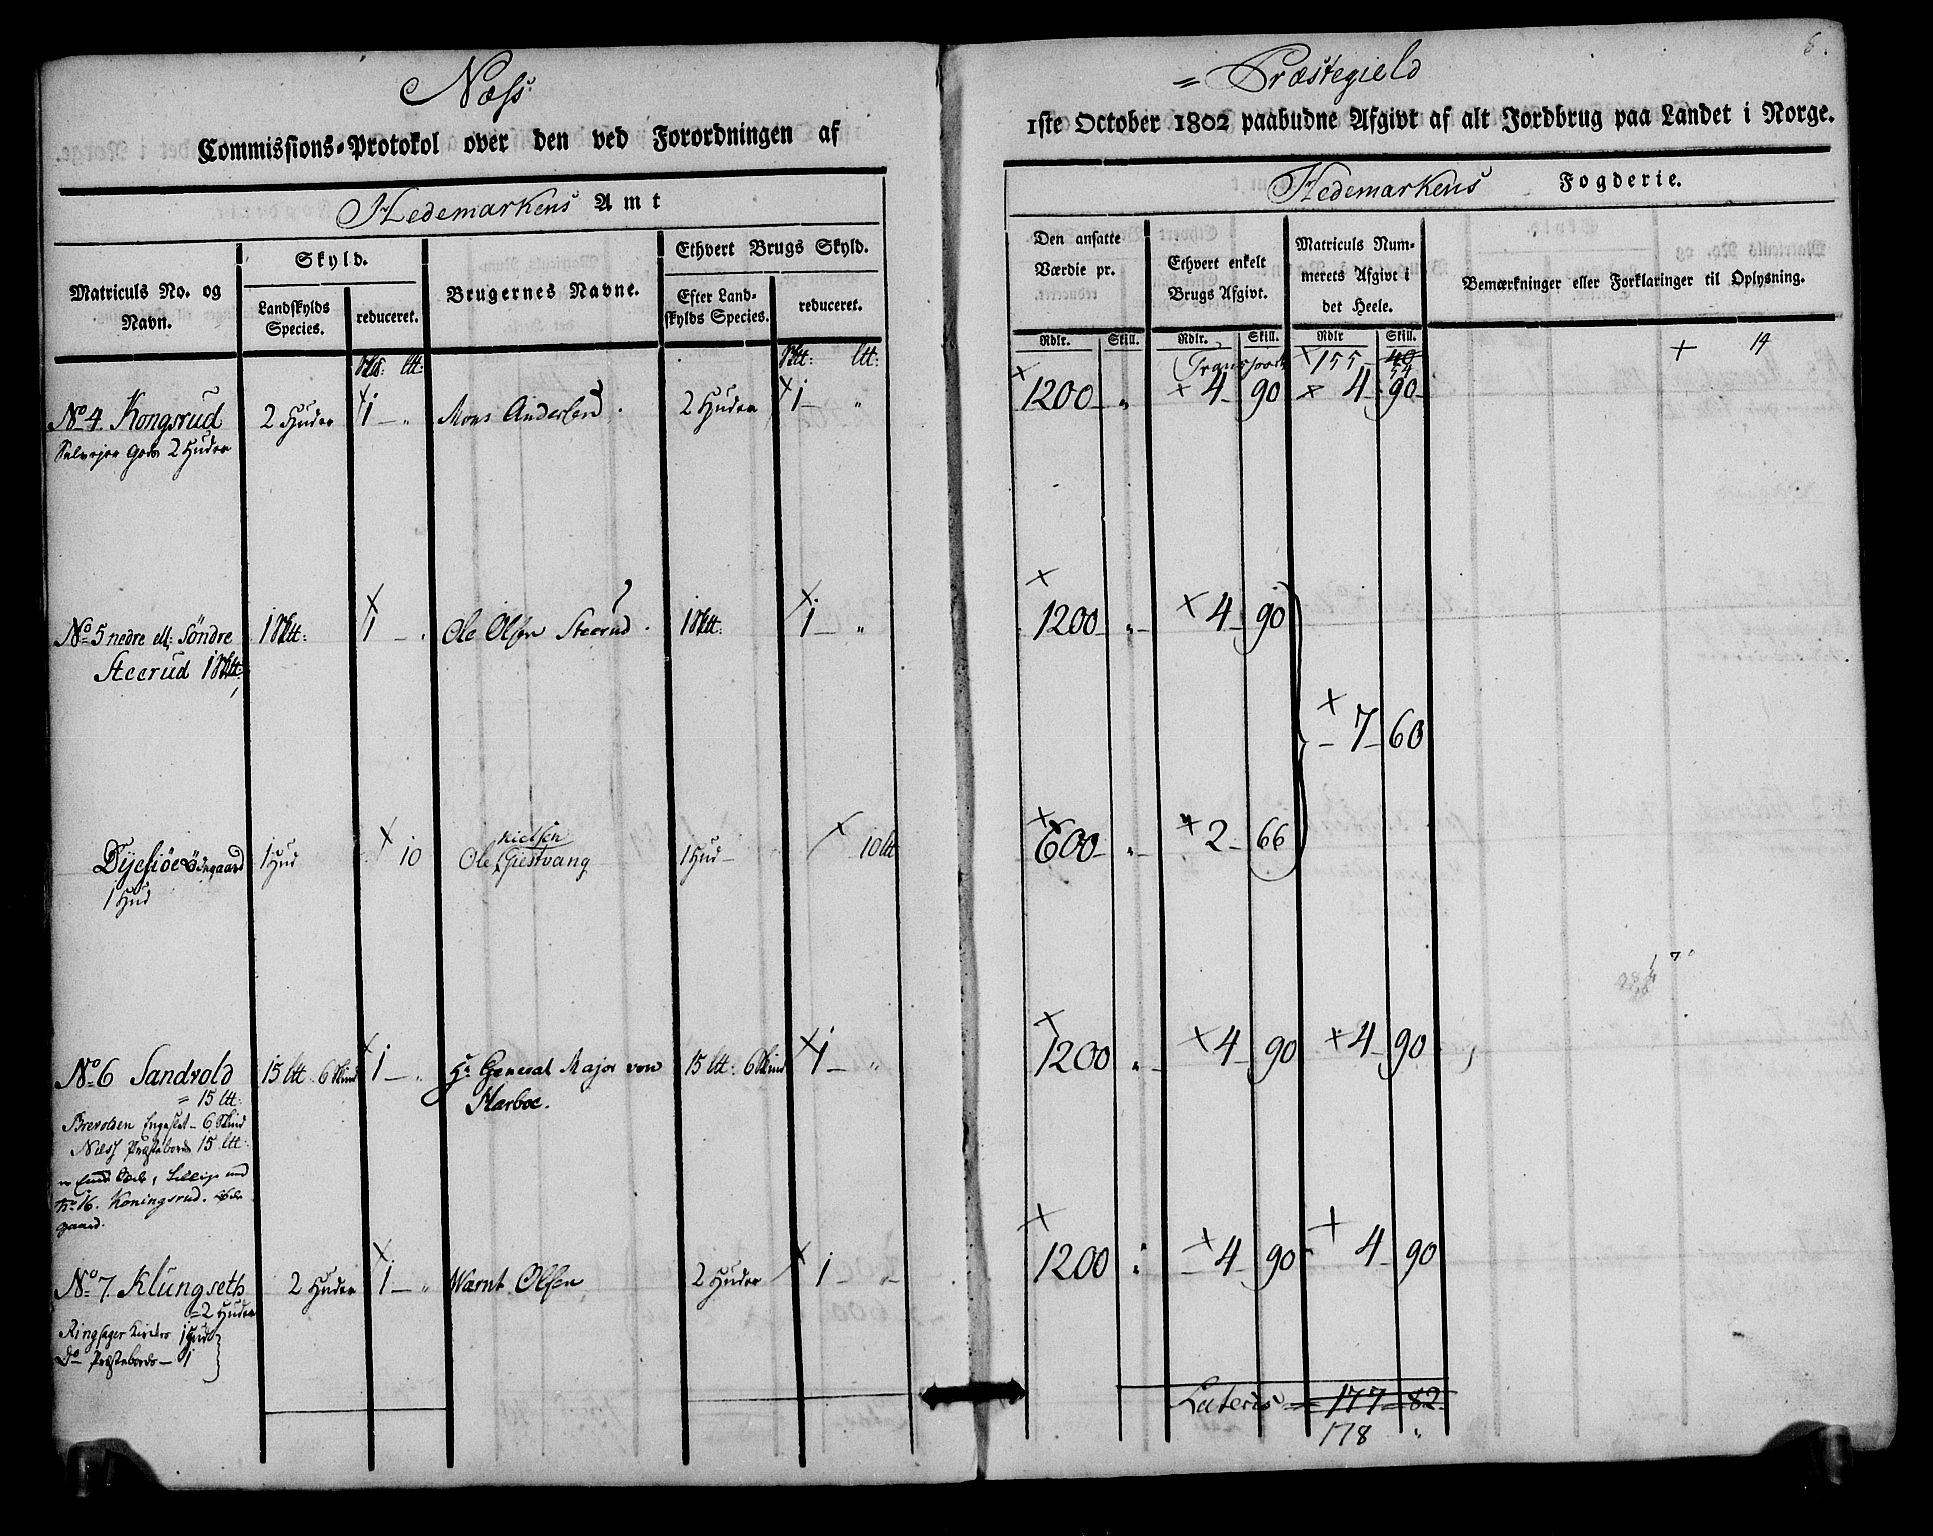 Næss
= Præstegield
8.
Commissions-Protokol over den ved Forordningen af
1ste October 1802 paabudne Afgivt af alt Jordbrug paa Landet i Norge.
Hedemarkens Amt
Hedemarkens Fogderie.
Matriculs No. og Navn.
Skyld.
Landskylds Species.
reduceret.
Brugernes Navne.
Ethvert Brugs Skyld.
Efter Landskylds Species.
reduceret.
Den ansatte Værdie pr.
Ethvert enkelt Brugs Afgivt.
Matriculs Nummerets Afgivt i det Heele.
Bemærkninger eller Forklaringer til Oplysning.
Rdlr. Skill. Rdlr. Skill. Rdlr Skill.
Transport × 155 - 40 54
+ 14
No 4. Kongsrud 2 Huder × 1 - „ Mons Andersen 2 Huder × 1 - „ × 1200 - „ × 4 - 90 × 4 - 90
Selvejer Gods 2 Huder
No 5 nedre ell: Søndre
Steerud
× 1 - „ Ole Olsen Steerud × 1 - „ × 1200 - „ - × 4 - 90
× - 7 - 60
Dÿesiøe Ødegaard 1 Hud × 10 Ole Nielsen Giestvang 1 Hud - × 10 ltt × 600 - „ - × 2 - 66
1 Hud
No 6 Sandvold 15 ltt. 6 Skind × 1 - „ Hr General Major von 15 ltt. 6 Skind × 1 - „ × 1200 „ - × 4 - 90 × 4 - 90
= 15 ltt. Harboe.
Brevolden Engeslet - 6 Skind
Næss Præstebord 15 ltt:
No 16. Koningsrud.
gaard.
No 7. Klungseth 2 Huder × 1 - „ Warnt Olsen 2 Huder × 1 - „ - × 1200 „ × 4 - 90 + 4 - 90
= 2 Huder
Ringsager Kirkes 1 Hud
Do Præstebords - 1
Lateris = 177 = 82
178 „